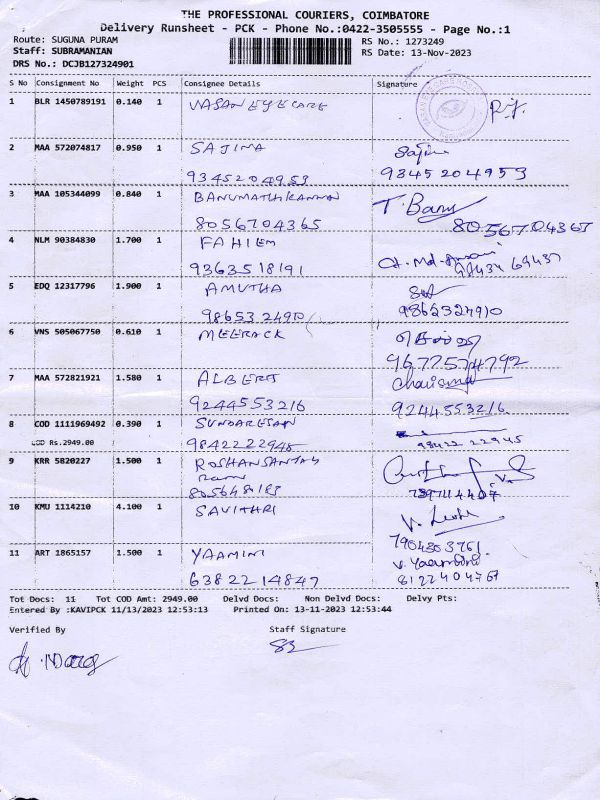 THE PROFESSIONAL COURIERS, COIMBATORE
Delivery Runsheet - PCK - Phone No.:0422-3505555 - Page No.:1
Route: SUGUNA PURAM
Staff: SUBRAMANIAN
DRS No.: DCJB127324901
RS No.: 1273249
RS Date: 13-Nov-2023
S No Consignment No Weight PCS Consignee Details Signature
1 BLR 1450789191 0.140 1 VASAN EYE CARE
2 MAA 572074817 0.950 1 SAJINA
9345204953 9845204953
3 MAA 105344099 0.840 1 BANUMATHI KANNAN T. Banu
8056704365 8056704365
4 NLM 90384830 1.700 1 FAHIEM
9363518191
5 EDQ 12317796 1.900 1 AMUTHA
9865324910 9865324910
6 VNS 505067750 0.610 1 MEERACK
9677574792
7 MAA 572821921 1.580 1 ALBERT Charisma
9244553216 9244553216
8 COD 1111969492 0.390 1 SUNDARESAN
COD Rs.2949.00 9842222945 98422 22945
9 KRR 5820227 1.500 1
10 KMU 1114210 4.100 1 SAVITHRI
11 ART 1865157 1.500 1 YAAMINI
6382214847 8122404767
Tot Docs: 11 Tot COD Amt: 2949.00 Delvd Docs: Non Delvd Docs: Delvy Pts:
Entered By :KAVIPCK 11/13/2023 12:53:13 Printed On: 13-11-2023 12:53:44
Verified By Staff Signature